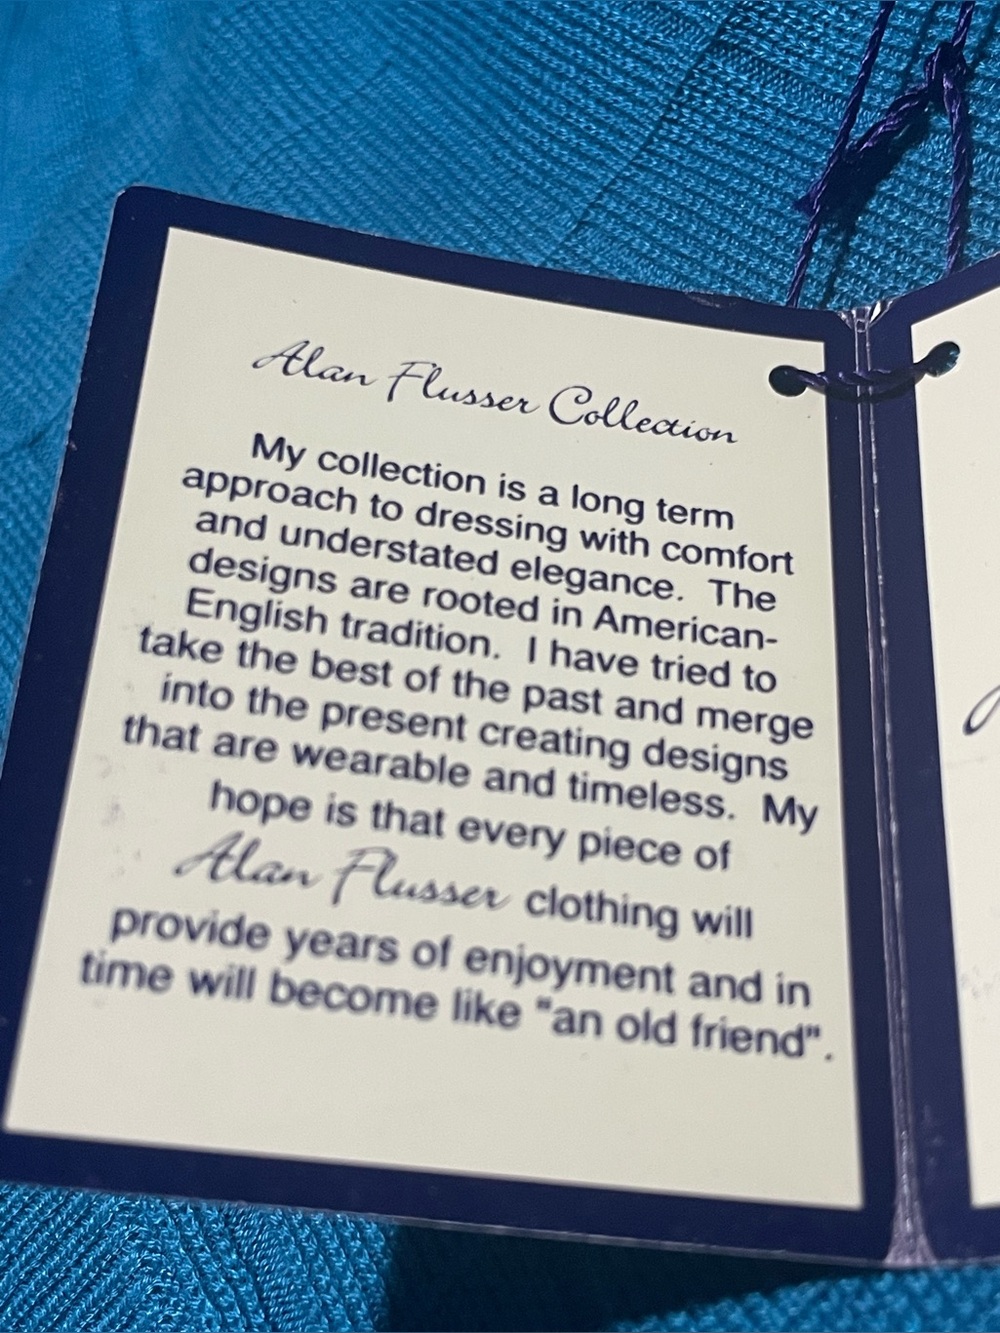 Alan Flusser Collection
My collection is a long term
approach to dressing with comfort
and understated elegance. The
designs are rooted in American-
English tradition. I have tried to
take the best of the past and merge
into the present creating designs
that are wearable and timeless. My
hope is that every piece of
Alan Flusser clothing will
provide years of enjoyment and in
time will become like "an old friend".